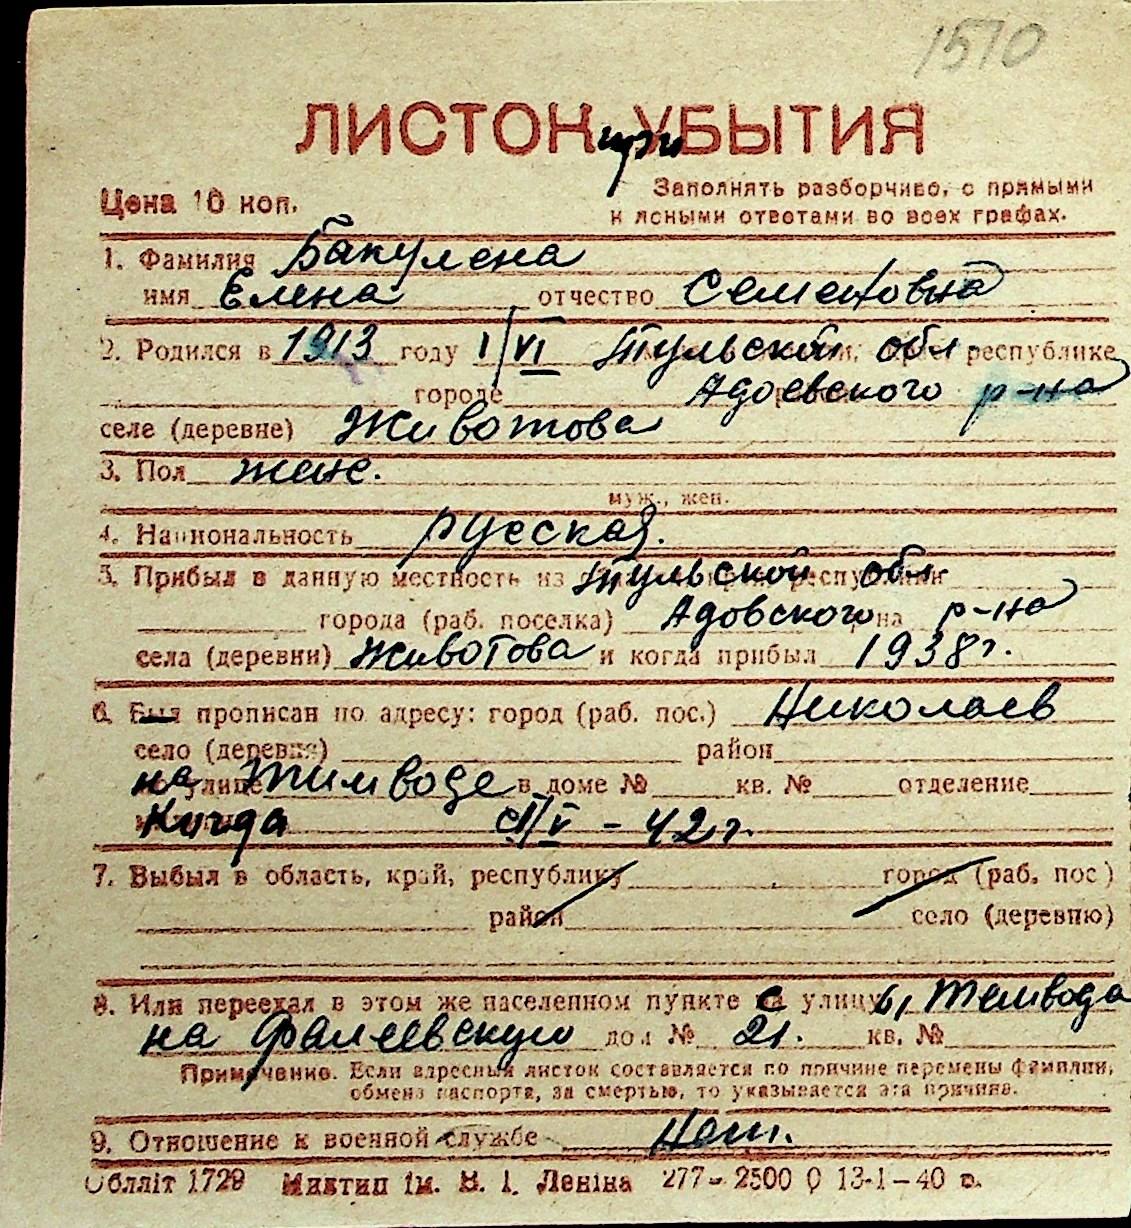 1510
ЛИСТОК при УБЫТИЯ
Цена 10 коп.
Заполнять разборчиво, с прямыми
и ясными ответами во всех графах.
1. Фамилия Бакулена
имя Елена отчество Семеновна
2. Родился в 1913 году 1/VI Тульской обл. республике
городе Адоевского р-на
селе (деревне) Животова
3. Пол жен.
муж., жен.
4. Национальность русская.
5. Прибыл в данную местность из Тульской обл.
города (раб. поселка) Адовского р-на
села (деревни) Животова и когда прибыл 1938 г.
6. Был прописан по адресу: город (раб. пос.) Николаев
село (деревня) район
на улице Темводе в доме № кв. № отделение
Когда с II/V - 42 г.
7. Выбыл в область, край, республику город (раб. пос)
район село (деревню)
8. Или переехал в этом же населенном пункте с улицы Темвода
на Фалеевскую дом № 21. кв. №
Примечание. Если адресный листок составляется по причине перемены фамилии,
обмена паспорта, за смертью, то указывается эта причина.
9. Отношение к военной службе Нет.
Обллiт 1729 Миктип iм. В. I. Ленiна 277-2500 0 13-1-40 в.